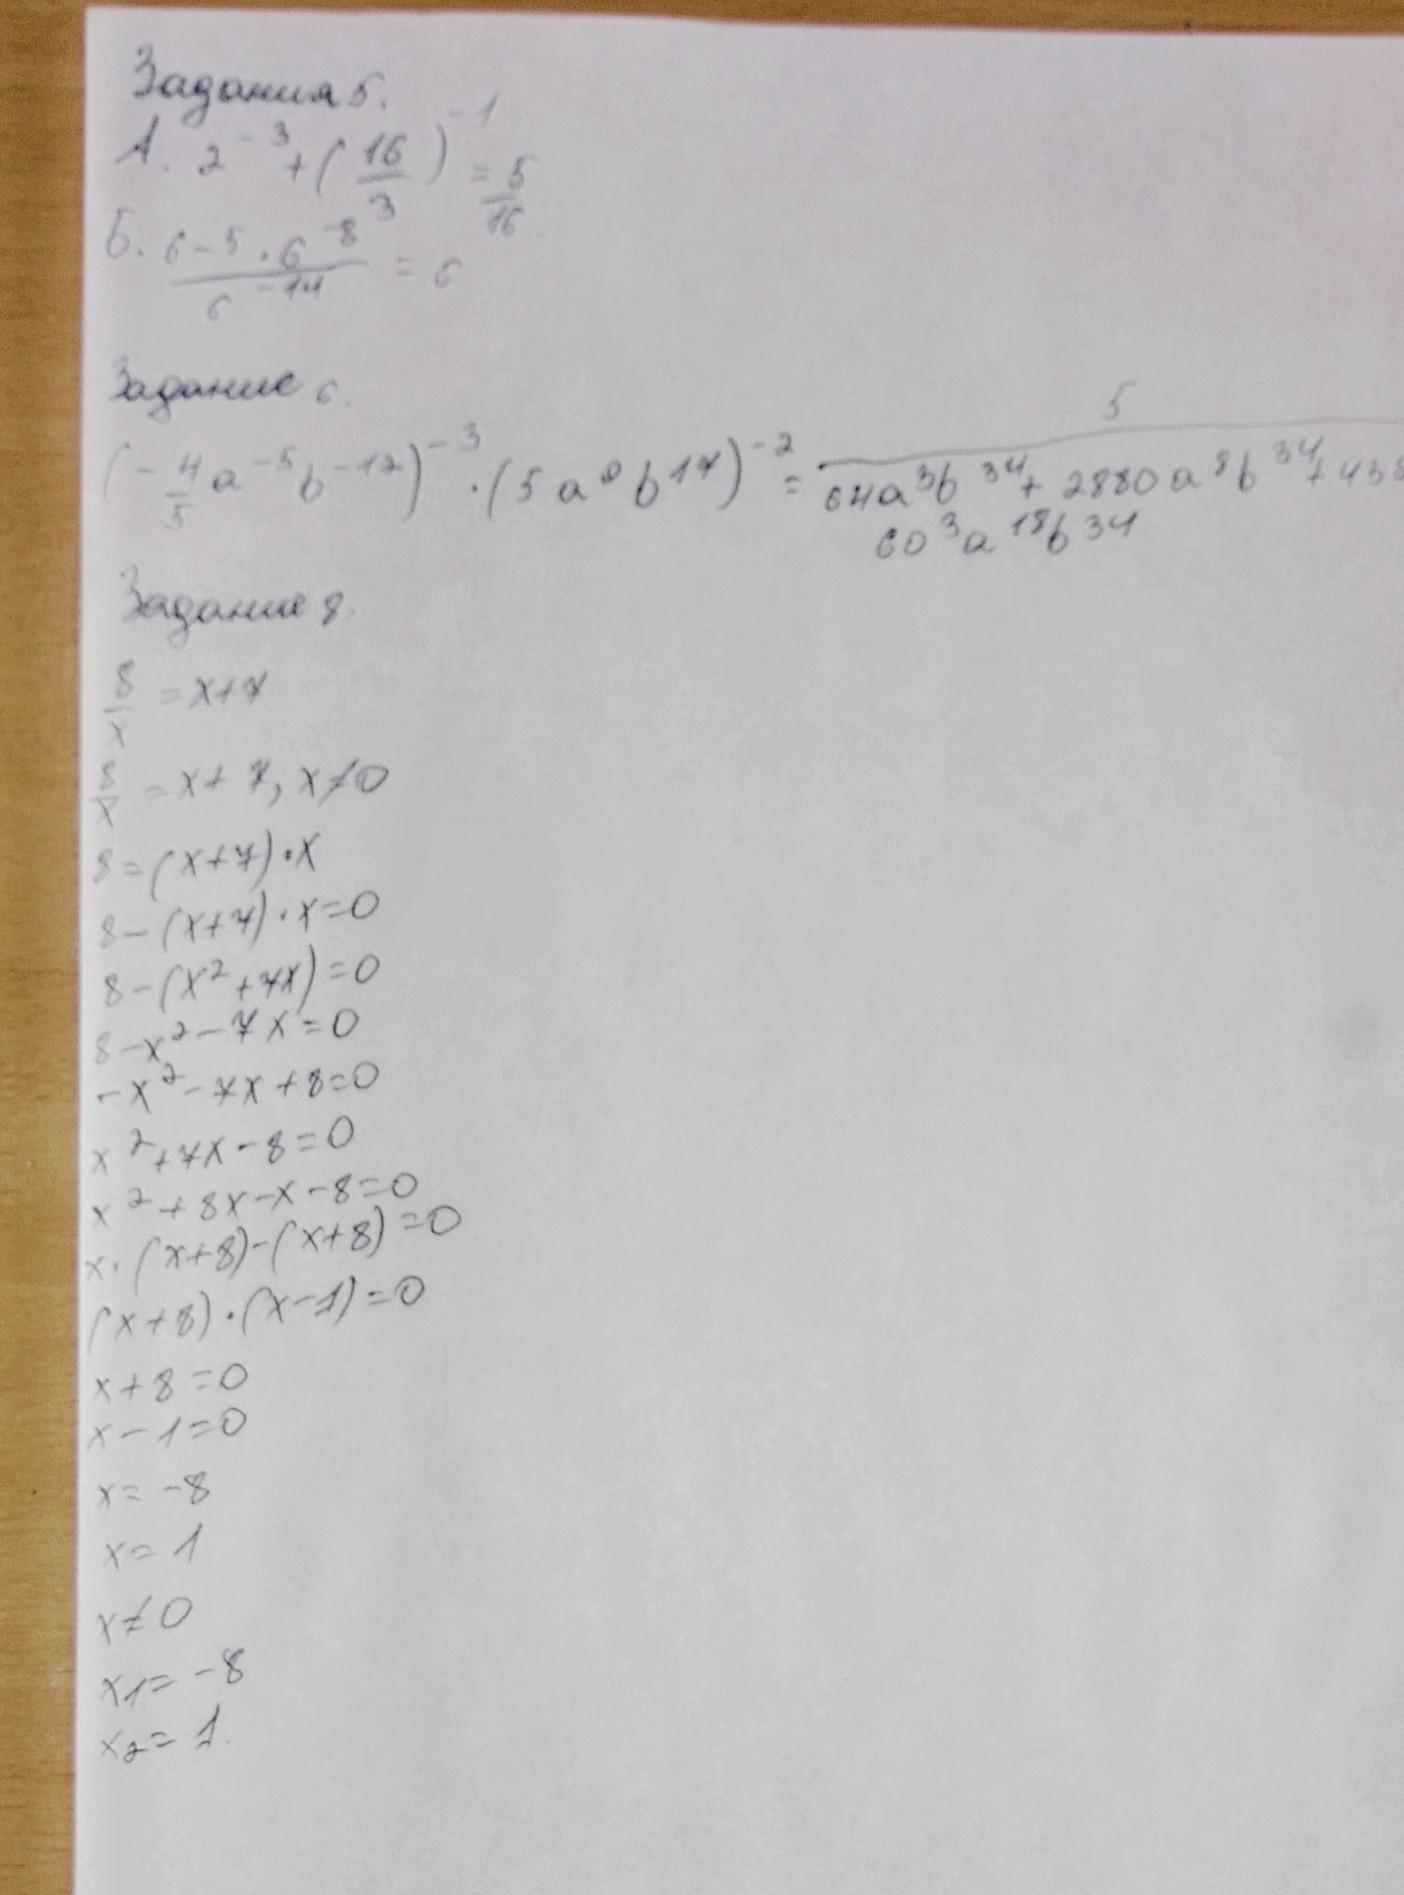 Задания 5.
А. 2^{-3} + (16/3)^{-1} = 5/16.
Б. 6-5 · 6^{-8} / 6^{-14} = 6
Задание 6.
(-4/5 a^{-5} b^{-12})^{-3} · (5 a b^{17})^{-2} = 5 / 64a^3b^{34} + 2880a^8b^{34} + 438
60^3a^{18}b^{34}
Задание 8.
8/x = x+7
8/x = x+7, x≠0
8=(x+7)·x
8-(x+7)·x=0
8-(x²+7x)=0
8-x²-7x=0
-x²-7x+8=0
x²+7x-8=0
x²+8x-x-8=0
x·(x+8)-(x+8)=0
(x+8)·(x-1)=0
x+8=0
x-1=0
x=-8
x=1
x≠0
x1=-8
x2=1.